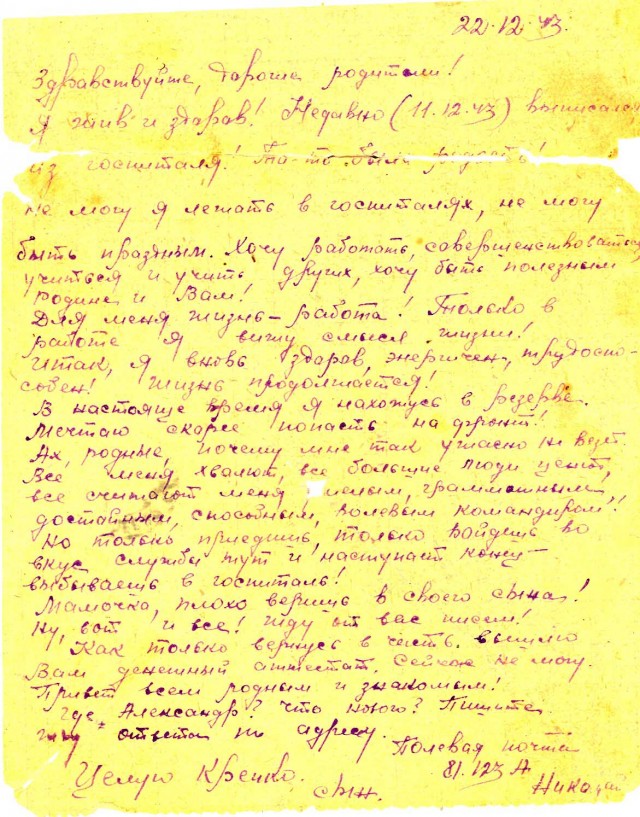 22.12.43.
Здравствуйте, дорогие родители!
Я жив и здоров! Недавно (11.12.43) выписался
из госпиталя! То-то была радость!
не могу я лежать в госпиталях, не могу
быть праздным. Хочу работать, совершенствоваться,
учиться и учить других, хочу быть полезным
Родине и Вам!
Для меня жизнь – работа! Только в
работе я вижу смысл жизни!
Итак, я вновь здоров, энергичен, трудоспо-
собен! Жизнь продолжается!
В настояще время я нахожусь в резерве.
Мечтаю скорее попасть на фронт!
Ах, родные, почему мне так ужасно не везет.
Все меня хвалют, все большие люди ценят,
все считают меня смелым, грамматным,
достойным, способным, волевым командиром!
Но только придешь, только войдешь во
вкус службы тут и наступает конец –
выбываешь в госпиталь!
Мамочка, плохо веришь в своего сына!
Ну, вот и все! Жду от вас писем!
Как только вернусь в часть вышлю
Вам денежный аттестат. Сейчас не могу.
Привет всем родным и знакомым!
Где Александр? Что нового? Пишите.
Жду ответа по адресу.
Полевая почта
81.123 А
Целую Крепко.
сын.
Николай